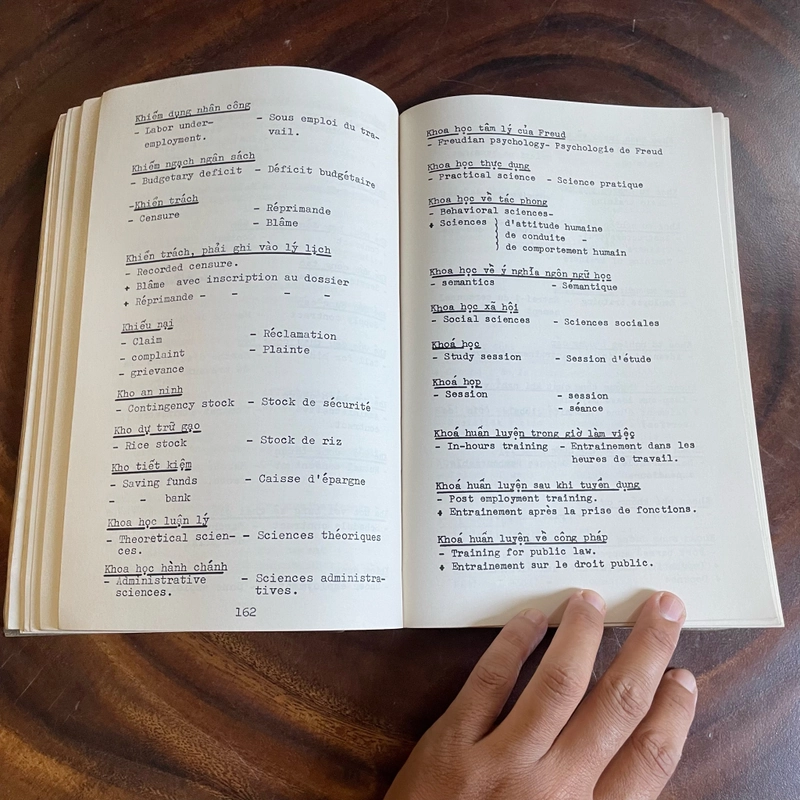 Khiếm dụng nhân công
- Labor under- - Sous emploi du tra-
employment. vail.
Khiếm ngạch ngân sách
- Budgetary deficit - Déficit budgétaire
-Khiển trách - Réprimande
- Censure - Blâme
Khiển trách, phải ghi vào lý lịch
- Recorded censure.
+ Blâme avec inscription au dossier
+ Réprimande - - - -
Khiếu nại
- Claim - Réclamation
- complaint - Plainte
- grievance
Kho an ninh
- Contingency stock - Stock de sécurité
Kho dự trữ gạo
- Rice stock - Stock de riz
Kho tiết kiệm
- Saving funds - Caisse d'épargne
- - bank
Khoa học luận lý
- Theoretical scien- - Sciences théoriques
ces.
Khoa học hành chánh
- Administrative - Sciences administra-
sciences. tives.
162
Khoa học tâm lý của Freud
- Freudian psychology- Psychologie de Freud
Khoa học thực dụng
- Practical science - Science pratique
Khoa học về tác phong
- Behavioral sciences-
+ Sciences } d'attitude humaine
de conduite -
de comportement humain
Khoa học về ý nghĩa ngôn ngữ học
- semantics - Sémantique
Khoa học xã hội
- Social sciences - Sciences sociales
Khoá học
- Study session - Session d'étude
Khoá họp
- Session - session
- séance
Khoá huấn luyện trong giờ làm việc
- In-hours training - Entraînement dans les
heures de travail.
Khoá huấn luyện sau khi tuyển dụng
- Post employment training.
+ Entraînement après la prise de fonctions.
Khoá huấn luyện về công pháp
- Training for public law.
+ Entraînement sur le droit public.